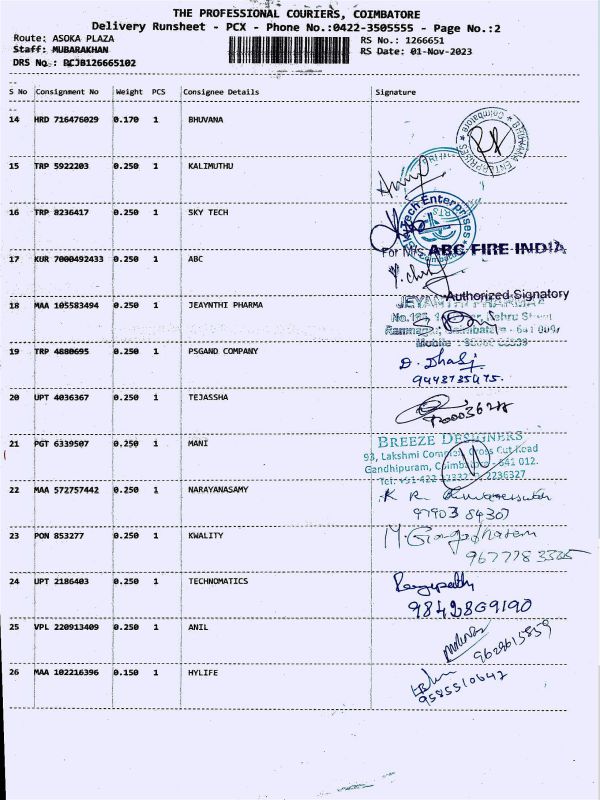 THE PROFESSIONAL COURIERS, COIMBATORE
Delivery Runsheet - PCX - Phone No.:0422-3505555 - Page No.:2
Route: ASOKA PLAZA
RS No.: 1266651
Staff: MUBARAKHAN
RS Date: 01-Nov-2023
DRS No : BCJB126665102
S No Consignment No Weight PCS Consignee Details Signature
14 HRD 716476029 0.170 1 BHUVANA
BHUVANA ENTERPRISES * Coimbatore *
15 TRP 5922203 0.250 1 KALIMUTHU
16 TRP 8236417 0.250 1 SKY TECH
Tech Enterprises
17 KUR 7000492433 0.250 1 ABC
For M/s ABC FIRE INDIA
Authorized Signatory
18 MAA 105583494 0.250 1 JEAYNTHI PHARMA
Nehru Street
Ramnagar, Coimbatore - 641 009
Mobile :
19 TRP 4880695 0.250 1 PSGAND COMPANY
9443735475.
20 UPT 4036367 0.250 1 TEJASSHA
21 PGT 6339507 0.250 1 MANI
BREEZE DESIGNERS
93, Lakshmi Complex, Cross Cut Road
Gandhipuram, Coimbatore - 641 012.
Tel: +91-422 2236327
22 MAA 572757442 0.250 1 NARAYANASAMY
97903 84307
23 PON 853277 0.250 1 KWALITY
24 UPT 2186403 0.250 1 TECHNOMATICS
9842869190
25 VPL 220913409 0.250 1 ANIL
9628615859
26 MAA 102216396 0.150 1 HYLIFE
9585510642